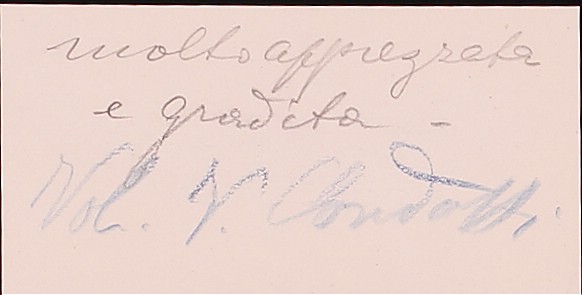 molto apprezzata
e gradita -
Vol. V. Condotti